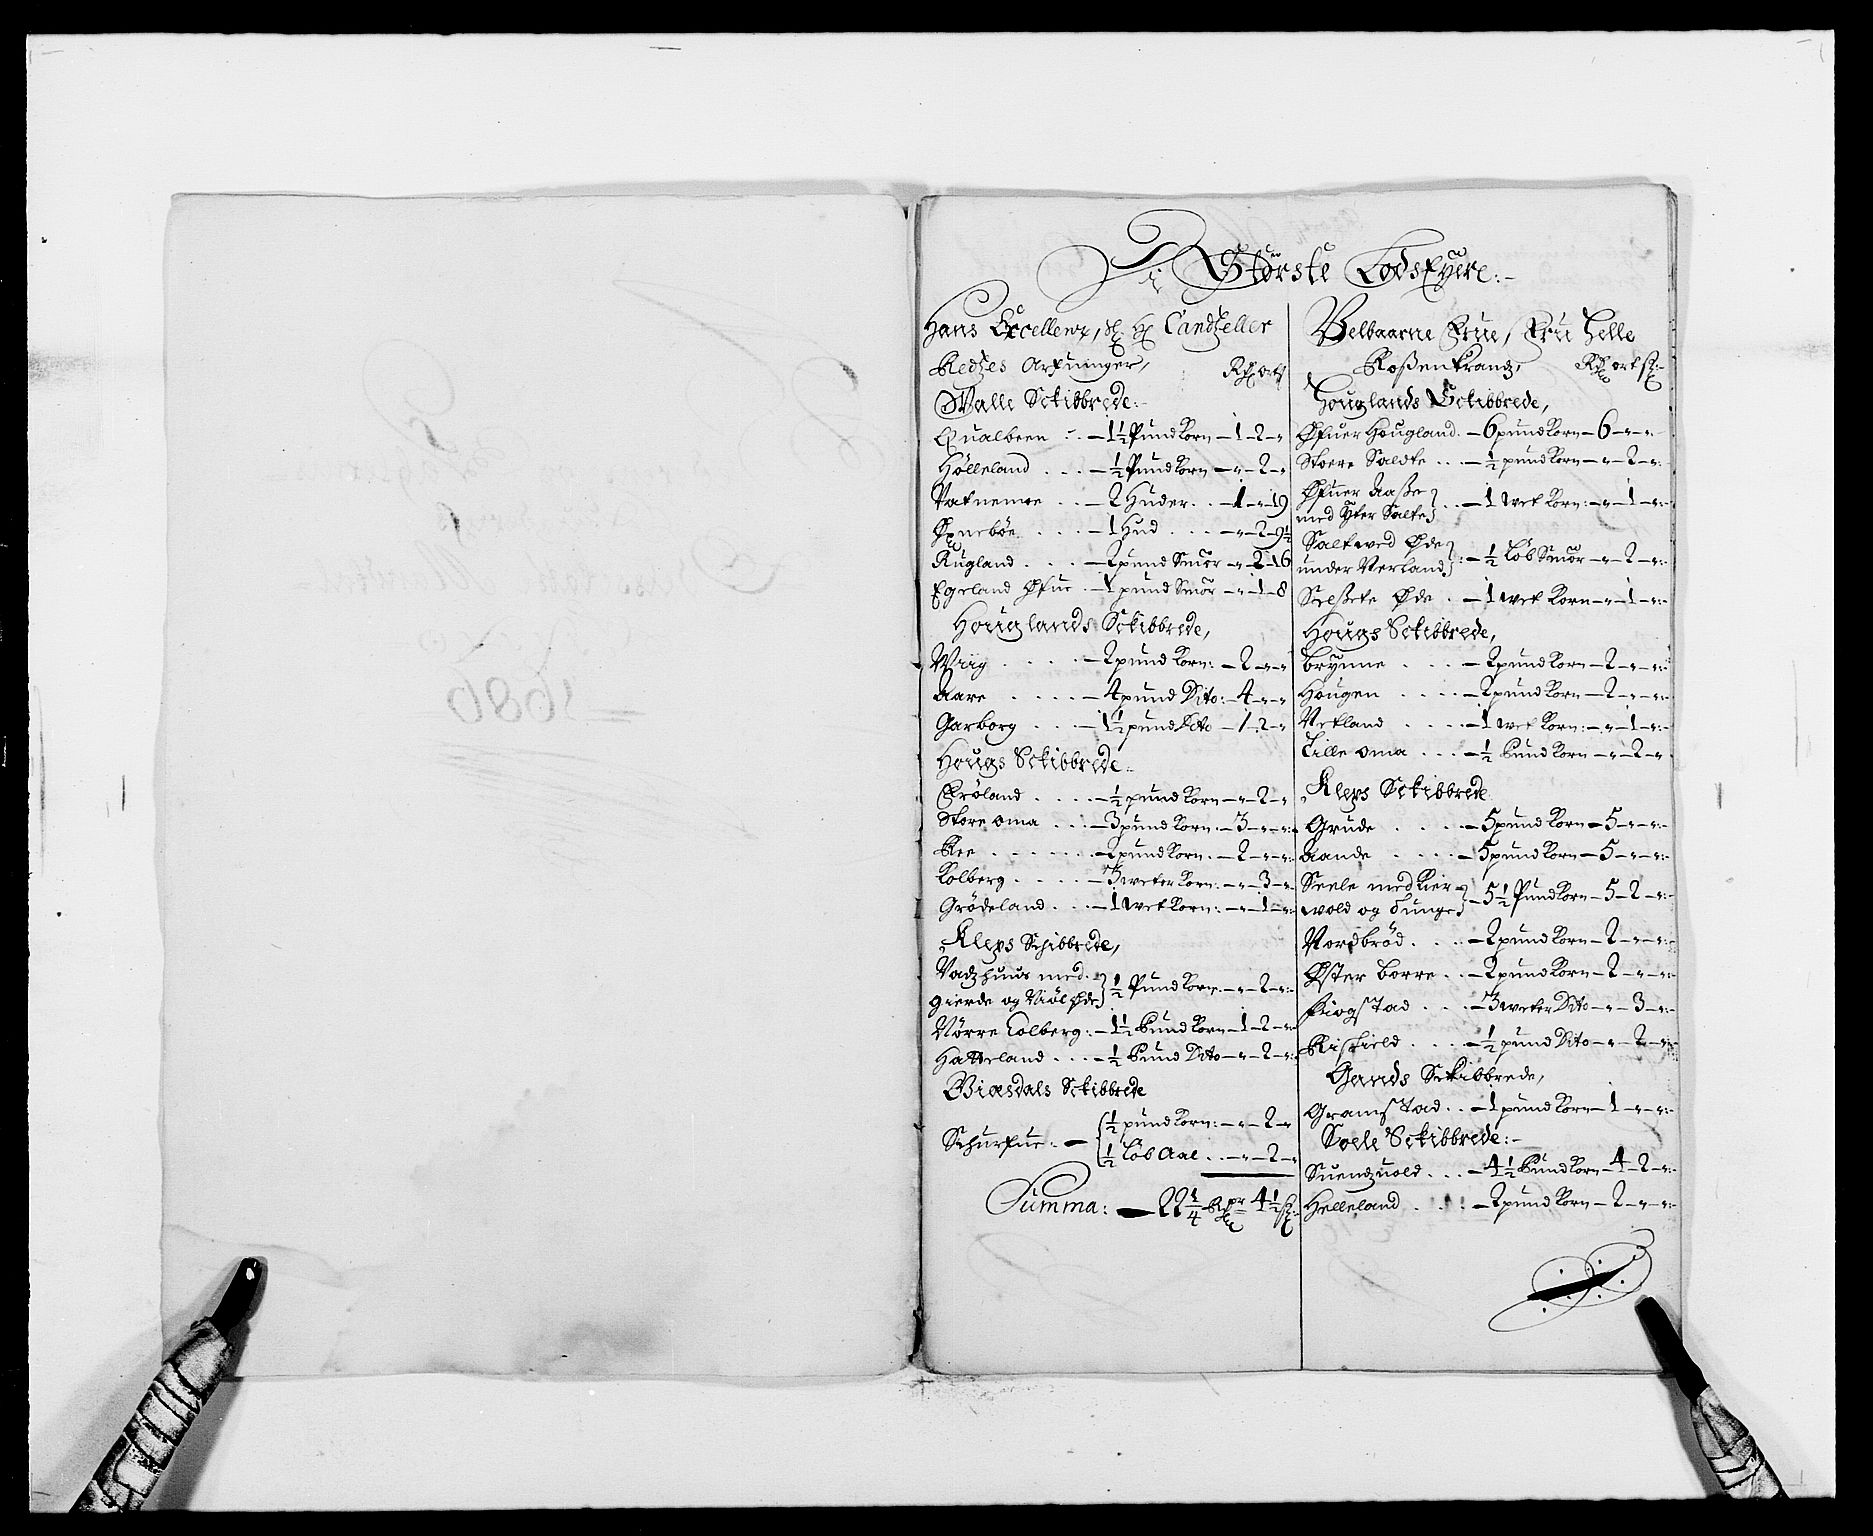 Di Største LodsEyere:-
Hans Excellence, Sl. Hr. Candzeller
Redzes Arfuinger, Rdr ort
Walle Sckibbrede:
Qualbeen - 1½ Pund Korn - 1 - 2 - "
Hölleland - ½ Pund Korn - " - 2 - "
Vatnemoe - 2 Huder - 1 - " - 19
Øxnebøe - 1 Hud - " - 2 - 9½
Rugland - 2 pund Smör - " - 2 - 16
Egeland Øfue - 1 pund Smör - " - 1 - 8
Houglands Sckibbrede,
Wiig - 2 pund Korn: - 2 - " - "
Aare - 4 pund Dito: - 4 - " - "
Garborg - 1½ pund Dito - 1 - 2 - "
Hougs Sckibbrede:
Fröland - ½ pund Korn - " - 2 - "
Store oma - 3 pund Korn: - 3 - " - "
Ree - 2 pund Korn - 2 - " - "
Kolberg - 3 wetter Korn: - " - 3 - "
Grödeland - 1 Wet Korn: - " - 1 - "
Kleps Schibbrede,
Vadzhuus med
gierde og Niöl Øde } ½ Pund Korn: - " - 2 - "
Nörre Colberg: - 1½ Pund Korn - 1 - 2 - "
Hatteland - ½ Pund Dito - " - 2 - "
Viasdals Sckibbrede
Schurfue: - { ½ pund Korn: - " - 2 - "
½ Löb Aal - " - 2 - "
Summa: - 22¼ Rdr 4½ s
Velbaarne Frue, Fru Helle
Roßenkrantz, Rdr ort s:
Houglands Sckibbrede,
Øfuer Hougland - 6 pund Korn - 6 - " - "
Stoere Saldte - ½ pund Korn - " - 2 - "
Øfuer Aaße
med Yter Salte } - 1 Wet Korn: - " - 1 - "
Saltewed Øde
under Verland } - ½ Löb Smör - " - 2 - "
Selßete Øde - 1 Wet Korn - " - 1 - "
Hougs Sckibbrede,
Brynne - 2 pund Korn - 2 - " - "
Hougen - 2 pund Korn - 2 - " - "
Netland - 1 Wet Korn: - " - 1 - "
Lille oma - ½ Pund Korn - " - 2 - "
Kleps Sckibbrede
Grude - 5 pund Korn - 5 - " - "
Aande - 5 pund Korn - 5 - " - "
Seele med Kier
wold og Tunge } - 5½ Pund Korn - 5 - 2 - "
Nordbröd - 2 pund Korn - 2 - " - "
Øster Borre - 2 pund Korn - 2 - " - "
Friogstad - 3 wetter Dito - " - 3 - "
Riskield - ½ pund Dito - " - 2 - "
Gands Sckibbrede,
Gramstad - 1 pund Korn - 1 - " - "
Soele Sckibbrede:-
Suendzuold - 4½ Pund Korn - 4 - 2 - "
Helleland - 2 pund Korn - 2 - " - "